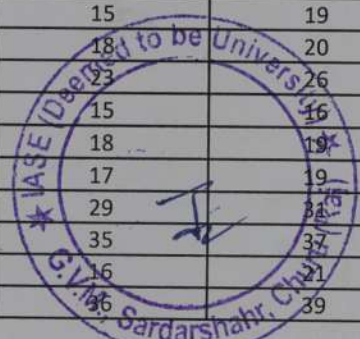 15 19
18 20
23 26
15 16
18 19
17 19
29 31
35 37
16 21
36 39
★ IASE (Deemed to be University) ★
G.V.M., Sardarshahr, Churu (Raj)